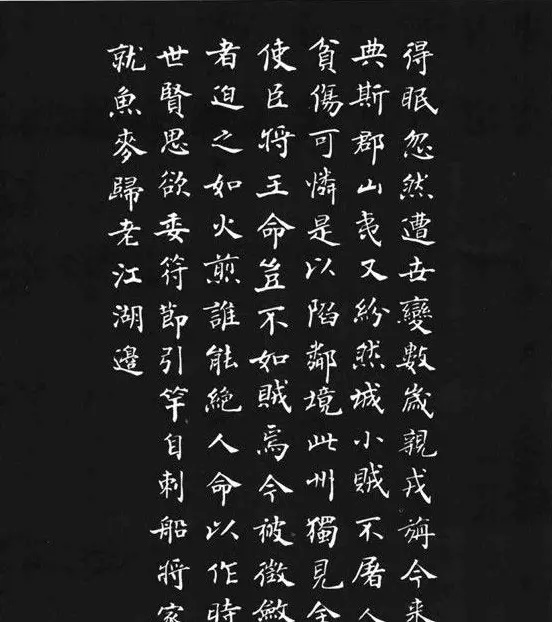 得眠忽然遭世變數歲親戎旃今来
典斯郡山夷又紛然城小賊不屠人
貧傷可憐是以陷鄰境此州獨見全
使臣将王命豈不如賊焉今被徵斂
者迫之如火煎誰能絕人命以作時
世賢思欲委符節引竿自刺船将家
就魚麥歸老江湖邊